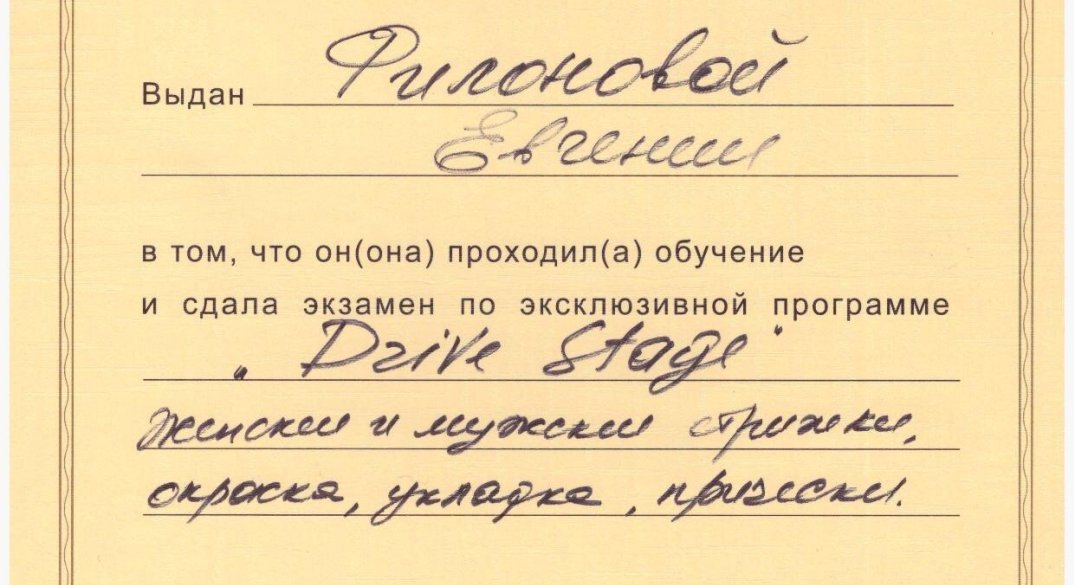 Выдан Филоновой
Евгении
в том, что он(она) проходил(а) обучение
и сдала экзамен по эксклюзивной программе
„ Drive Stage "
женские и мужские стрижки,
окраска, укладка, прически.